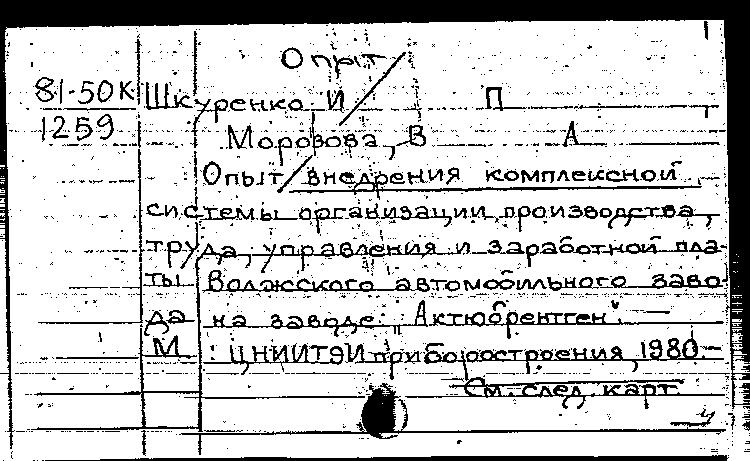 Опыт
81-50К Шкуренко, И П
1259 Морозова, В А
Опыт внедрения комплексной
системы организации производства,
труда, управления и заработной пла-
ты Волжского автомобильного заво-
да на заводе „Актюбрентген". —
М.: ЦНИИТЭИ приборостроения, 1980.—
См. след. карт.